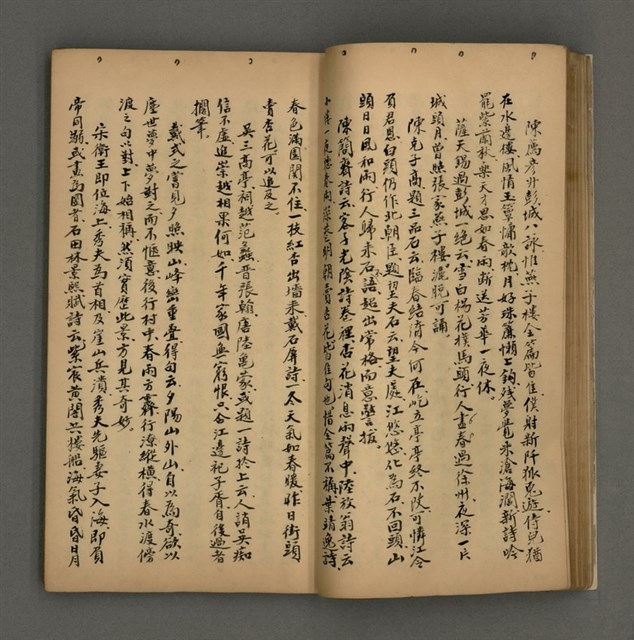 陳廌彥升彭城八詠惟燕子樓全篇皆佳僕射新阡狐兔遊侍兒猶
在水邊樓風情玉簟嘯敧枕月好珠簾懶上鉤殘夢覺來滄海濶新詩吟
罷紫蘭秋樂天才思如春雨斷送芳華一夜休
薩天錫過彭城一絶云雪白楊花撲馬頭行人盡春過徐州夜深一片
城頭月曾照張家燕子樓灑脫可誦
陳克子高題三品石云臨春結綺今何在屹立亭亭終不改可憐江令
負君恩白頭仍作北朝臣題望夫石云望夫處江悠悠化為石不回頭山
頭日日風和雨行人歸來石語起出常格而意警拔
陳簡齋詩云客子光陰詩卷裡杏花消息雨聲中陸放翁詩云
小樓一夜聽春雨深巷明朝賣杏花皆佳句也惜全篇不稱葉靖逸詩
春色滿園關不住一枝紅杏出墻來戴石屏詩一冬天氣如春暖昨日街頭
賣杏花可以追及之
吳三高亭祠越范蠡晉張翰唐陸龜蒙或題一詩於上云人誚吳痴
信不虛追崇越相果何如千年家國無窮恨只合江邊祀子胥自後過者
擱筆
戴式之嘗見夕照映山峰巒重疊得句云夕陽山外山自以為奇欲以
塵世夢中夢對之而不愜意後行村中春雨方霽行潦縱橫得春水渡傍
渡之句以對上下始相稱然須實歷此景方見其奇妙
宋衛王即位海上秀夫為首相及崖山兵潰秀夫先驅妻子入海即負
帝同溺或畫為圖者石田林景熙賦詩云紫宸黃閣共樓船海氣昏昏日月